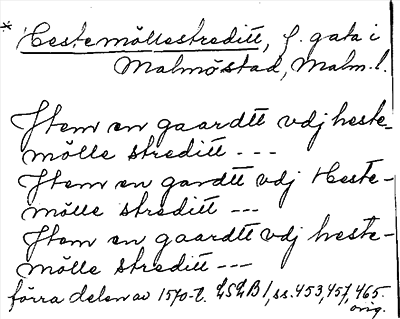 * Hestemöllestreditt, f. gata i
Malmöstad, Malm. l.
Item en gaardtt vdj heste-
mölle streditt ---
Item en gardtt vdj Heste-
mölle streditt ---
Item en gaardtt vdj heste-
mölle streditt ---
förra delen av 1570-t. LSLB 1, ss. 453, 457, 465.
orig.